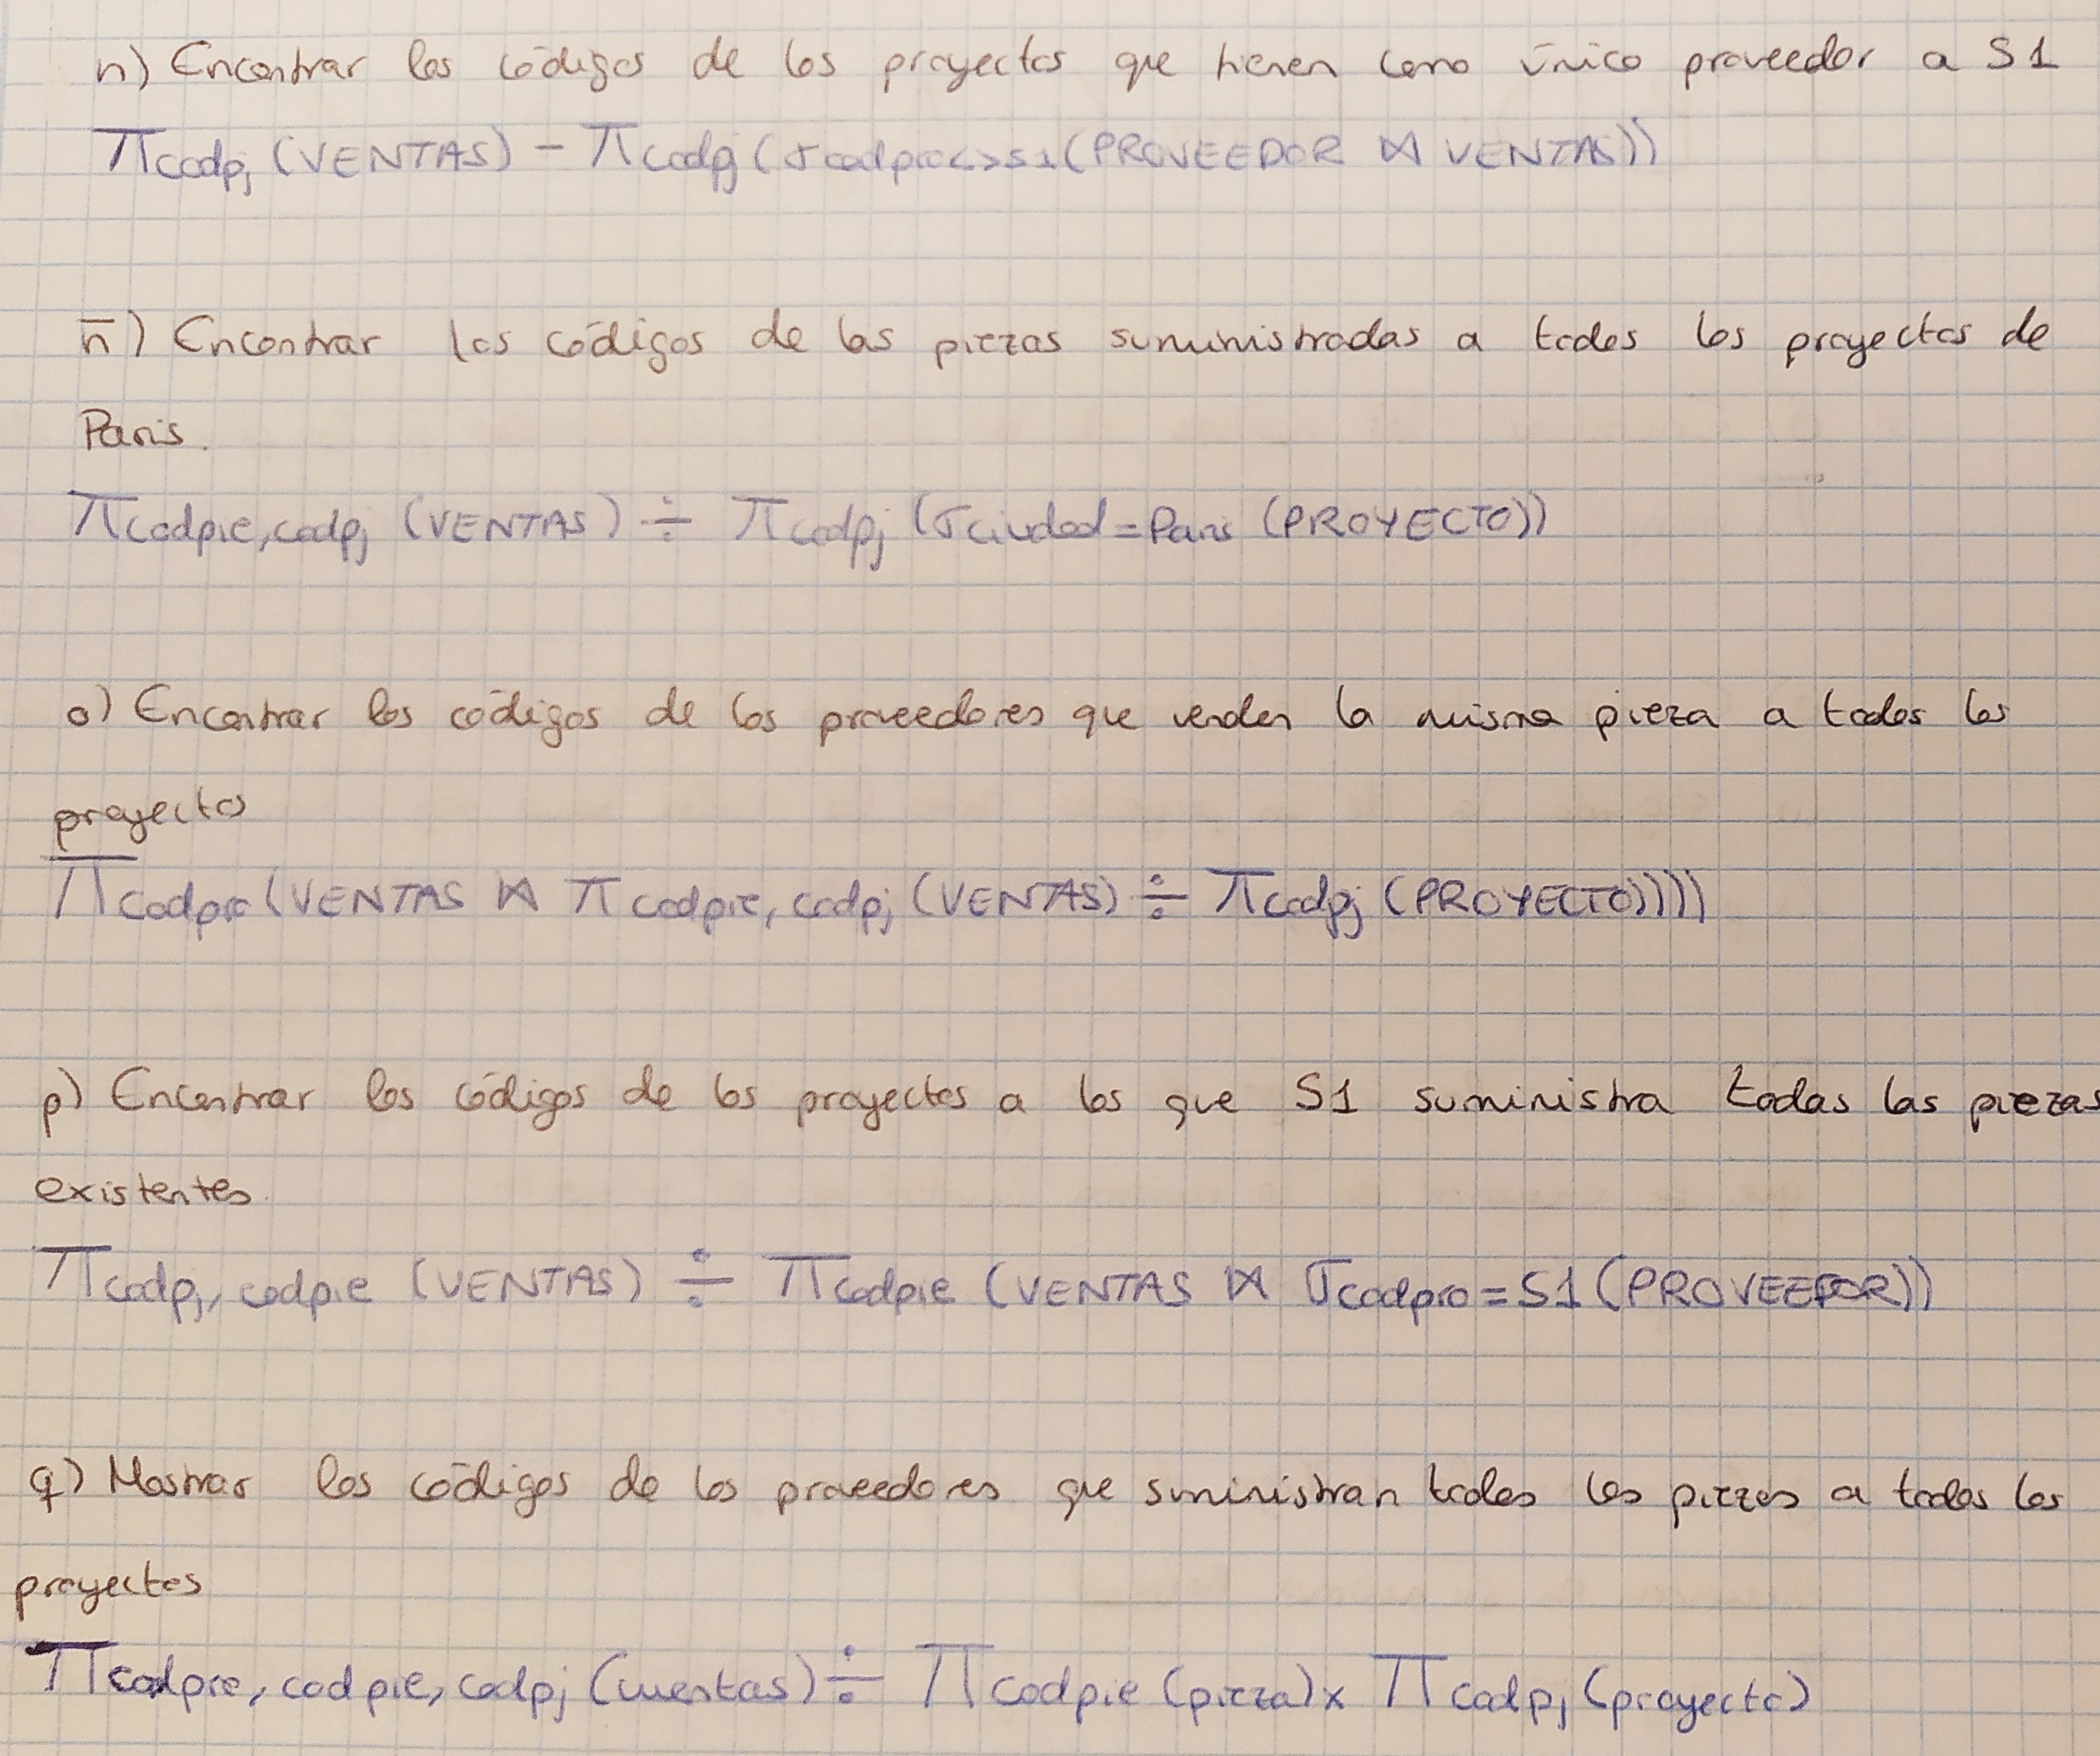 n) Encontrar los códigos de los proyectos que tienen como único proveedor a S1
π codpj (VENTAS) - π codpj (σ codpro<>S1 (PROVEEDOR ⋈ VENTAS))
ñ) Encontrar los códigos de las piezas suministradas a todos los proyectos de
Paris.
π codpie, codpj (VENTAS) ÷ π codpj (σ ciudad = Paris (PROYECTO))
o) Encontrar los códigos de los proveedores que venden la misma pieza a todos los
proyectos
π codpro (VENTAS ⋈ π codpie, codpj (VENTAS) ÷ π codpj (PROYECTO))))
p) Encontrar los códigos de los proyectos a los que S1 suministra todas las piezas
existentes.
π codpj, codpie (VENTAS) ÷ π codpie (VENTAS ⋈ σ codpro = S1 (PROVEEDOR))
q) Mostrar los códigos de los proveedores que suministran todas las piezas a todos los
proyectos
π codpro, codpie, codpj (ventas) ÷ π codpie (pieza) x π codpj (proyecto)